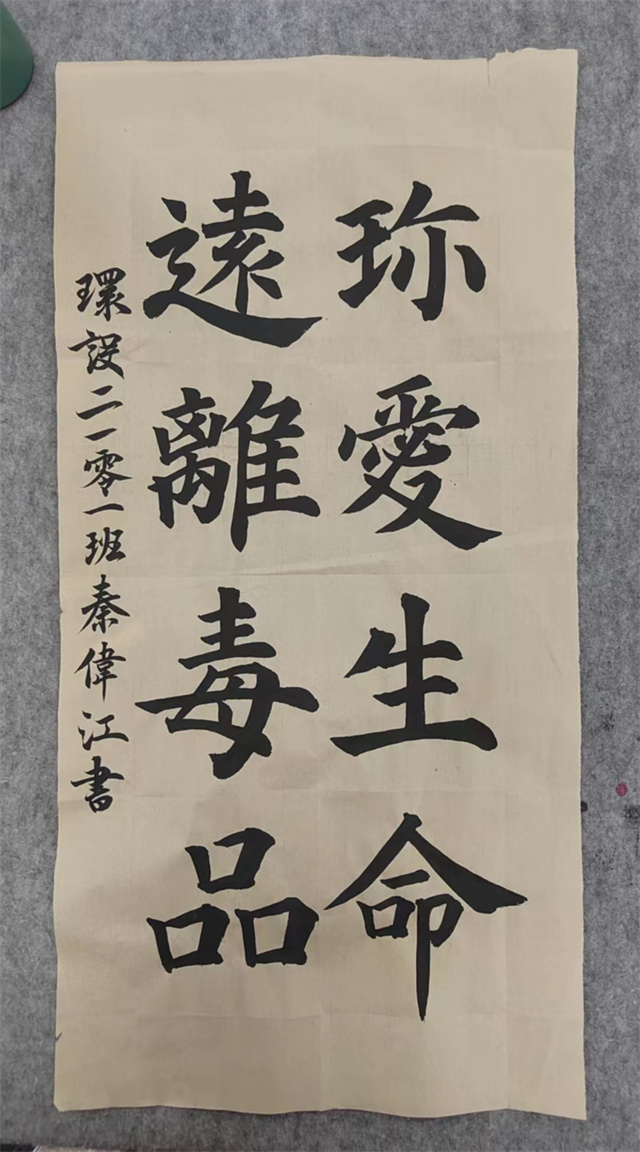 珎愛生命
遠離毒品
環設二一零一班秦偉江書